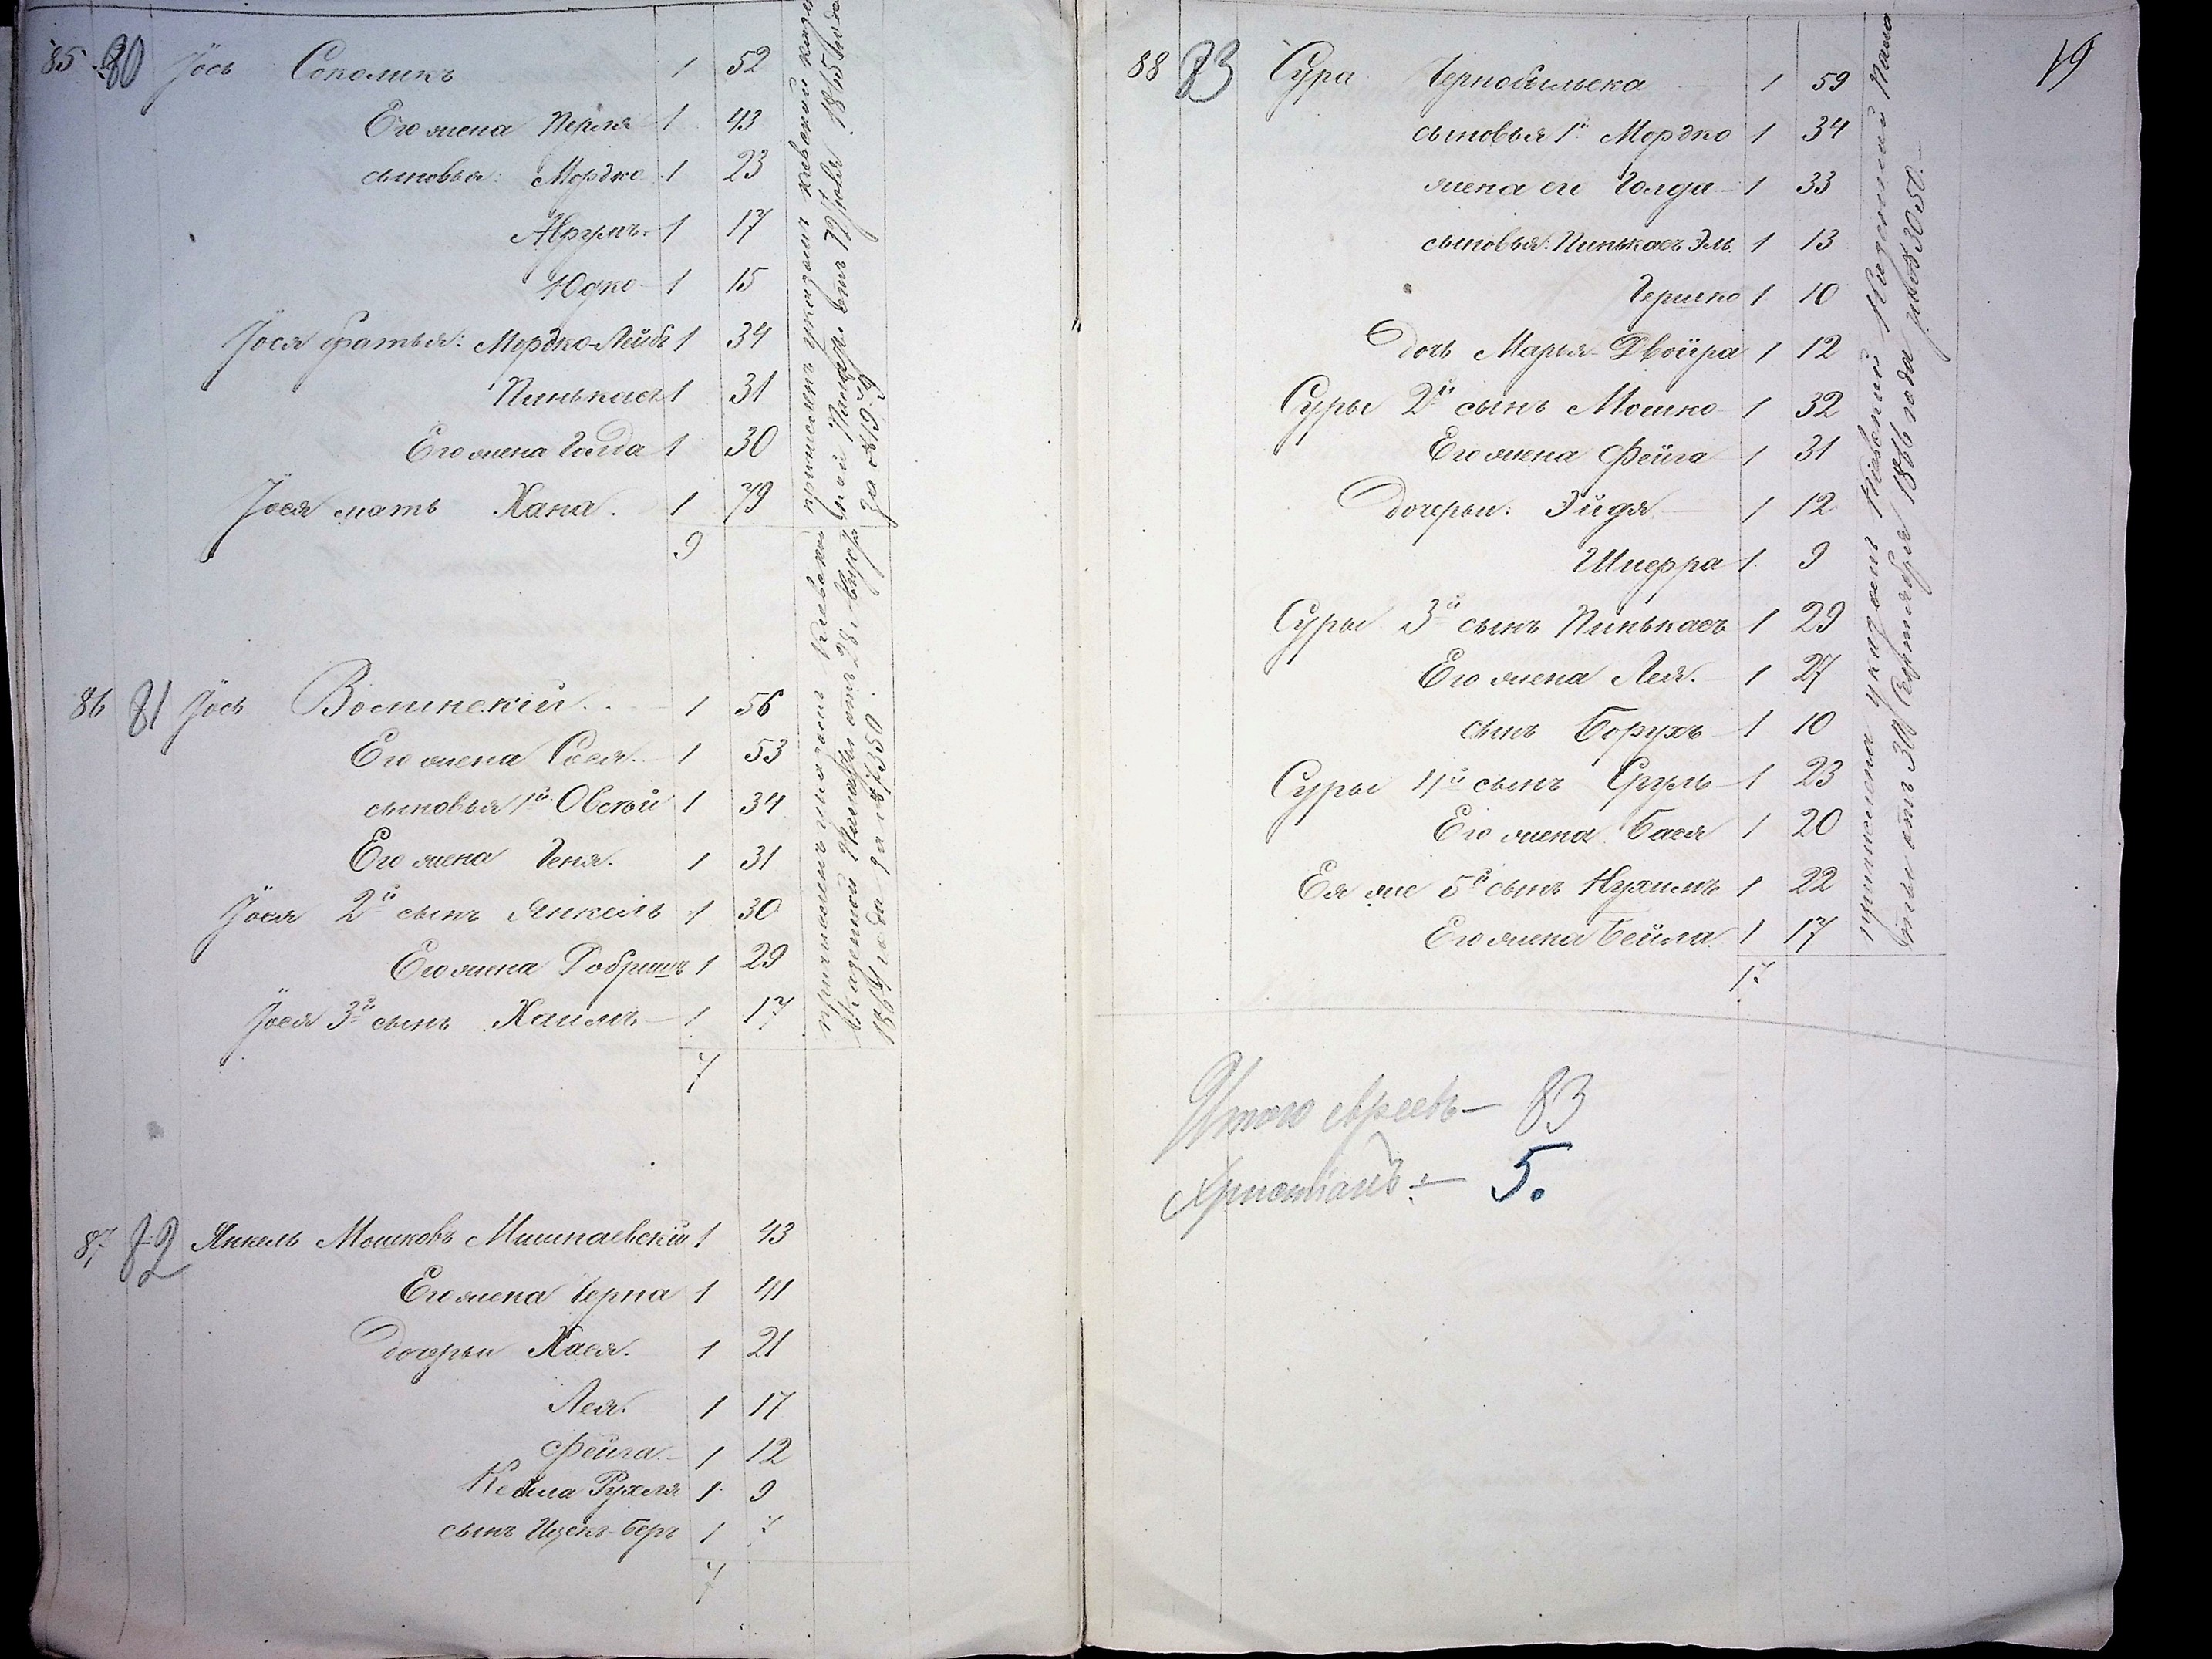 85. 80 Іось Соколикъ 1 52
Его жена Перля 1 43
сыновья: Мордко 1 23
Аврумъ 1 17
Юдко 1 15
Іося братья: Мордко-Лейбъ 1 34
Пинькасъ 1 31
Его жена Голда 1 30
Іося мать Хана. 1 79
9
причисленъ указомъ Кіевской казен
ной Палаты отъ 1865 года
за №
86 81 Іось Волинскій 1 56
Его жена Сося. 1 53
сыновья 1й Овсѣй 1 34
Его жена Геня. 1 31
Іося 2й сынъ Янкель 1 30
Его жена Добришъ 1 29
Іося 3й сынъ Хаимъ 1 17
7
причисленъ указомъ Кіевской
казенной Палаты отъ 28
1864 года за № 7350
87. 82 Янкель Мошковъ Мишнаевскій 1 43
Его жена Черна 1 41
дочери Хася. 1 21
Лея. 1 17
Фейга 1 12
Кейла Рухля 1 9
сынъ Ицекъ-Беръ 1 7
7
19
88 83 Сура Чернобыльска 1 59
сыновья 1й Мордко 1 34
жена его Голда 1 33
сыновья: Пинькасъ Эль. 1 13
Гершко 1 10
дочь Марья-Двойра 1 12
Суры 2й сынъ Мошко 1 32
Его жена Фейга 1 31
дочери: Эйдя 1 12
Шперра 1 9
Суры 3й сынъ Пинькасъ 1 29
Его жена Лея. 1 27
сынъ Борухъ 1 10
Суры 4й сынъ Сруль 1 23
Его жена Бася 1 20
Ея же 5й сынъ Нухимъ 1 22
Его жена Бейла 1 17
17.
причислена указомъ Кіевской Казенной Пала
ты отъ 30 Сентября 1866 года за № 3050.
Итого евреевъ — 83
Христіанъ — 5.